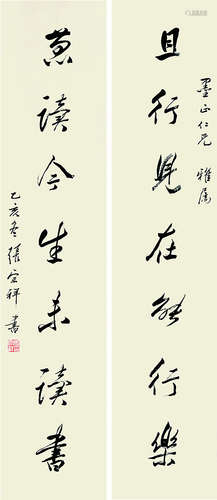 墨正仁兄 雅属
且行見在能行樂
讀今生未讀書
乙亥冬 張宗祥 書